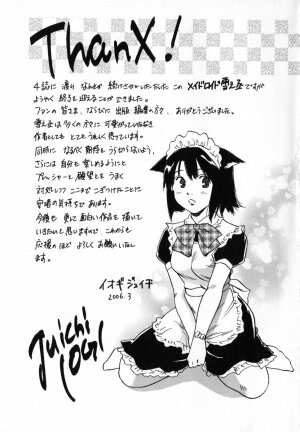 ThanX!
4話に渡り なんとか 続けさせていただいた この メイドロイド雪之丞ですが
ようやく 終りを迎えることができました。
ファンの皆さま、ならびに 出版・編集の方々、ありがとうございました。
雪之丞は多くの方々に 可愛がっていただき
作者としても とても うれしく思っています。
同時に なにげに 期待を うらぎらないよう、
さらには 自分も 楽しめるようにと
プレッシャーと 願望とを うまく
対処しつつ ここまで こぎつけたことに
安堵の気持ちで
あります。
今後も 更に 面白い作品を 描いて
いきたいと思いますので、これからも
応援のほど よろしく お願いいたし
ます。
イオギ ジュイチ
2006.3
Juichi
IOGI